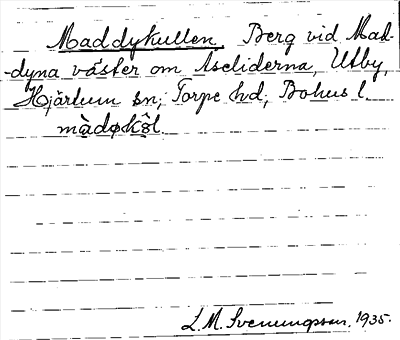 Maddykullen, Berg vid Mad-
-dyna väster om Aseliderna, Utby,
Hjärtum sn; Torpe hd; Bohus l.
L. M. Svenungsson, 1935.